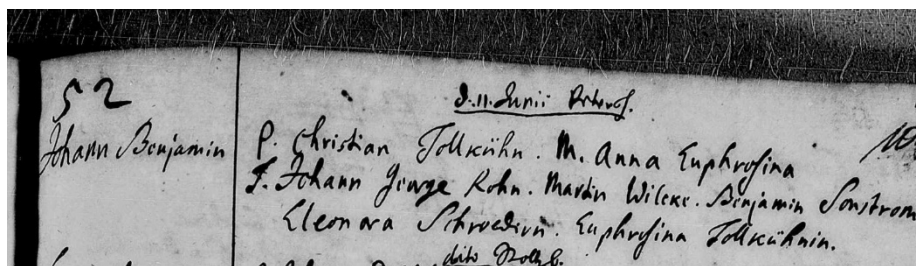 52
d. 11. Junii
Johann Benjamin P. Christian Tollkühn. M. Anna Euphrosina
T. Johann George Rohn. Martin Wilcke. Benjamin Sonstrom
Eleonora Schroederin. Euphrosina Tollkühnin.
dito